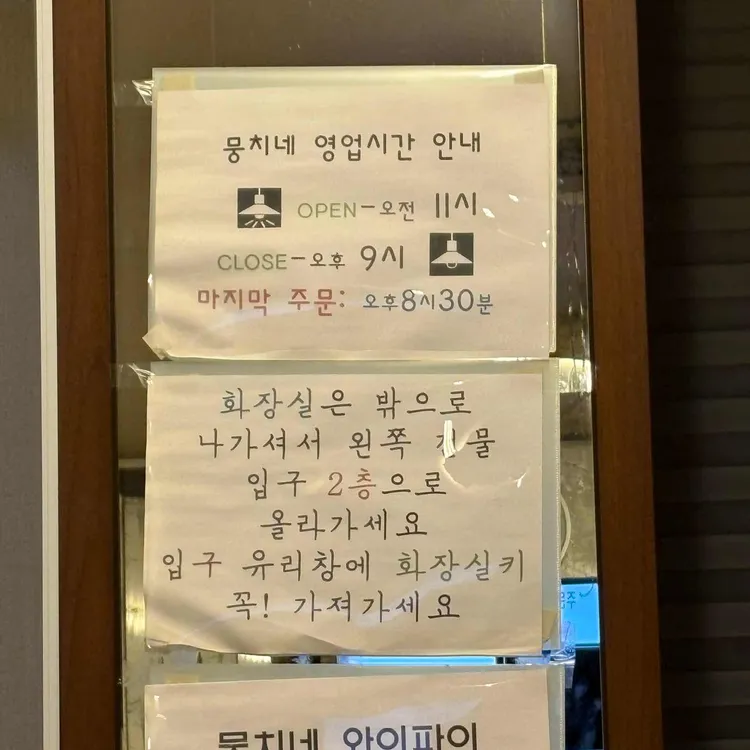 뭉치네 영업시간 안내
OPEN-오전 11시
CLOSE-오후 9시
마지막 주문: 오후8시30분
화장실은 밖으로
나가셔서 왼쪽 건물
입구 2층으로
올라가세요
입구 유리창에 화장실키
꼭! 가져가세요
뭉치네 와이파이